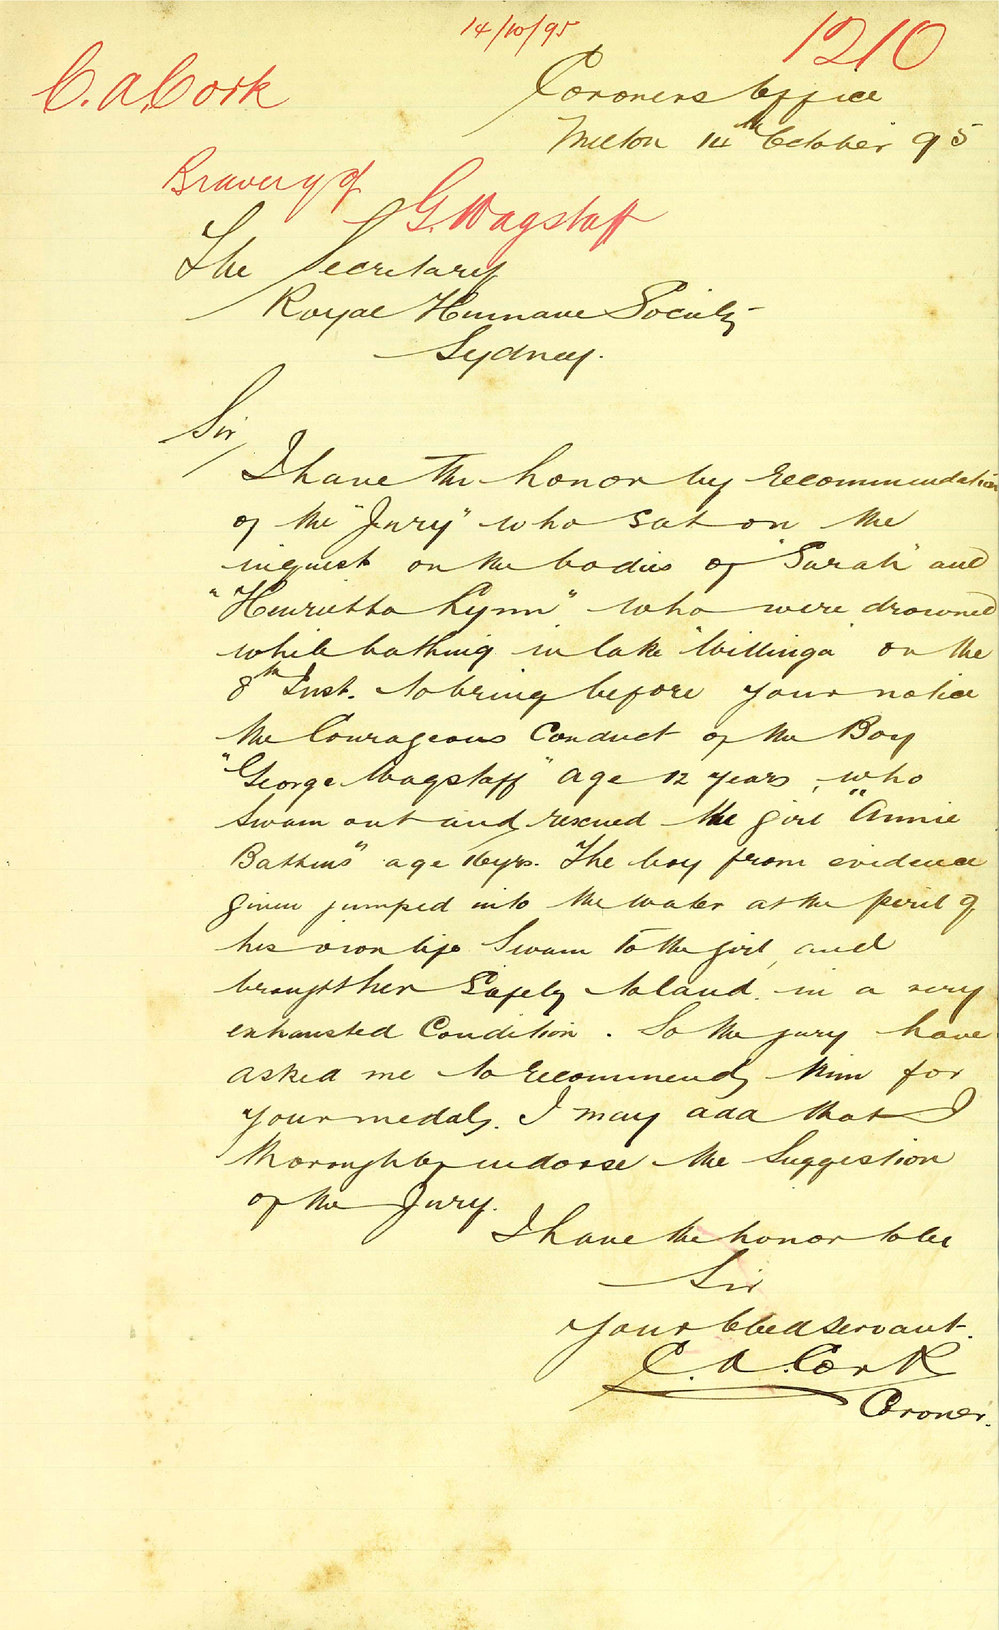 14/10/95
1210
C. A. Cork
Coroners Office
Milton 14th October 95
Bravery of
G. Wagstaff
The Secretary
Royal Humane Society
Sydney.
Sir,
I have the honor by recommendation
of the "Jury" who sat on the
inquest on the bodies of "Sarah" and
"Henrietta Lynn" who were drowned
while bathing in lake "Willinga" on the
8th Inst. to bring before your notice
the Courageous Conduct of the Boy
"George Wagstaff" age 12 years, who
Swam out and rescued the girl "Annie
age 16 yrs. The boy from evidence
given jumped into the water at the peril of
his own life Swam to the girl, and
brought her Safely to land. in a very
exhausted Condition. So the jury have
asked me to recommend him for
your medal. I may add that I
thoroughly indorse the Suggestion
of the Jury.
I have the honor to be
Sir
Your Obed servant.
C. A. Cork
Coroner.